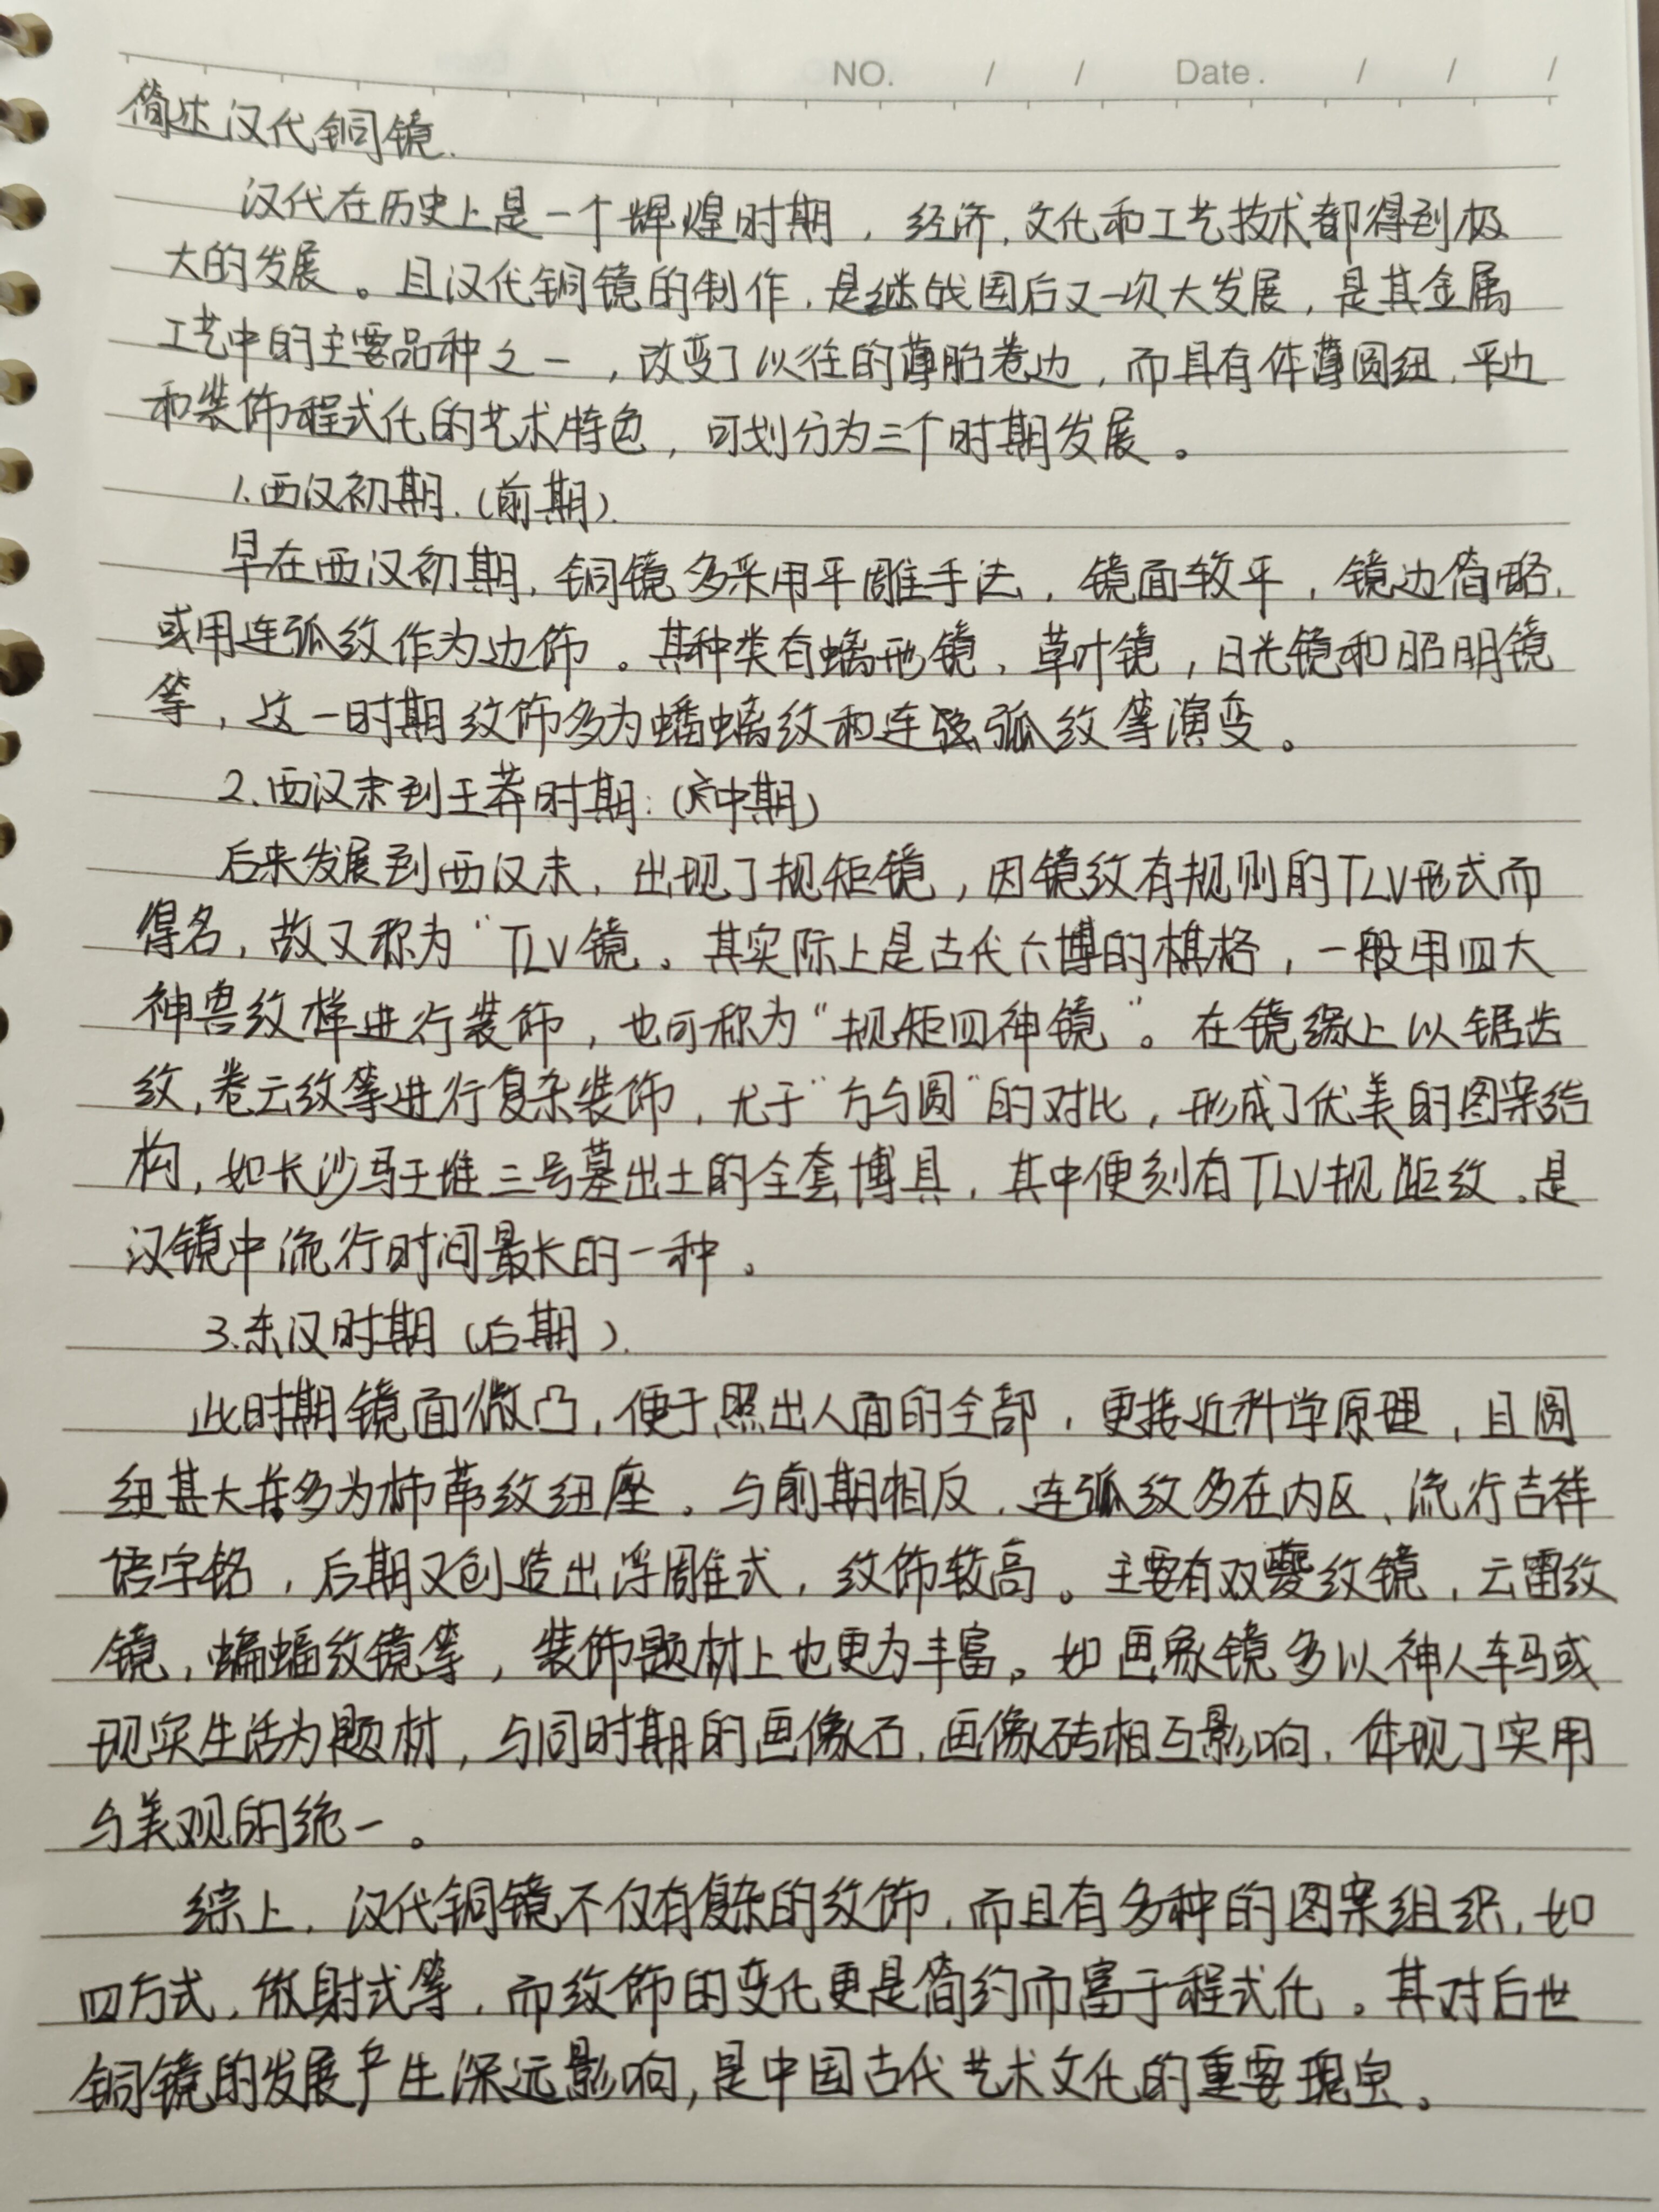 NO. / / Date. / / /
简述汉代铜镜.
汉代在历史上是一个辉煌时期，经济,文化和工艺技术都得到极
大的发展。且汉代铜镜的制作,是继战国后又一次大发展,是其金属
工艺中的主要品种之一,改变了以往的薄胎卷边,而具有体薄圆纽,平边
和装饰程式化的艺术特色,可划分为三个时期发展。
1.西汉初期.(前期).
早在西汉初期,铜镜多采用平雕手法,镜面较平,镜边简略,
或用连弧纹作为边饰。其种类有螭形镜、草叶镜,日光镜和昭明镜
等,这一时期纹饰多为蟠螭纹和连弧纹等演变。
2.西汉末到王莽时期:(中期)
后来发展到西汉末,出现了规矩镜,因镜纹有规则的TLV形式而
得名,故又称为“TLV镜。其实际上是古代六博的棋格,一般用四大
神兽纹样进行装饰,也可称为“规矩四神镜”。在镜缘上以锯齿
纹,卷云纹等进行复杂装饰,尤于“方与圆”的对比,形成了优美的图案结
构,如长沙马王堆三号墓出土的全套博具,其中便刻有TLV规距纹。是
汉镜中流行时间最长的一种。
3.东汉时期(后期).
此时期镜面微凸,便于照出人面的全部,更接近科学原理,且圆
纽甚大并多为柿蒂纹纽座。与前期相反,连弧纹多在内区、流行吉祥
语字铭,后期又创造出浮雕式,纹饰较高。主要有双夔纹镜,云雷纹
镜,蝙蝠纹镜等,装饰题材上也更为丰富。如画象镜多以神人车马或
现实生活为题材,与同时期的画像石,画像砖相互影响,体现了实用
与美观的统一。
综上,汉代铜镜不仅有复杂的纹饰,而且有多种的图案组织,如
四方式,放射式等,而纹饰的变化更是简约而富于程式化。其对后世
铜镜的发展产生深远影响,是中国古代艺术文化的重要瑰宝。